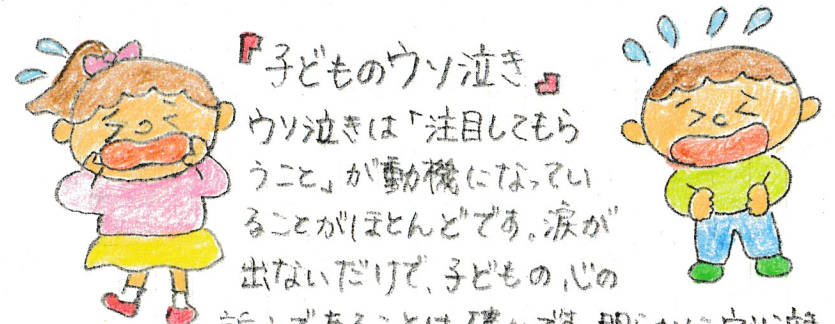 『子どものウソ泣き』
ウソ泣きは「注目してもら
うこと」が動機になってい
ることがほとんどです。涙が
出ないだけで、子どもの心の